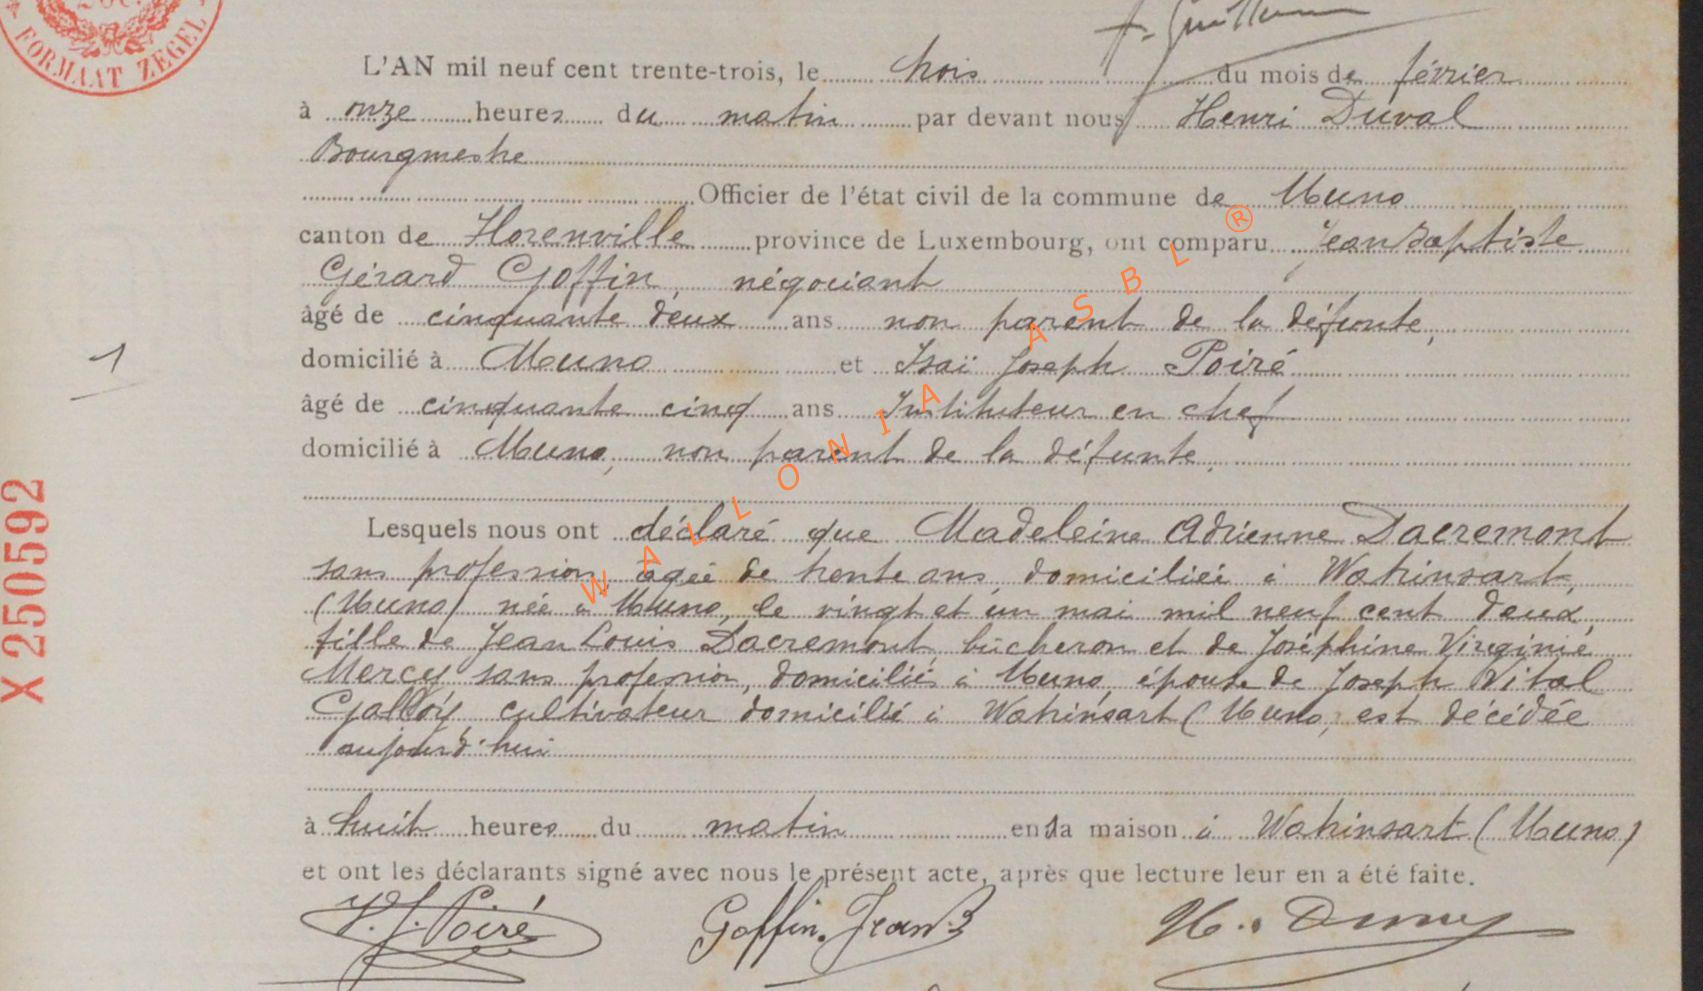 FORMAAT ZEGEL
L'AN mil neuf cent trente-trois, le trois du mois de février
à onze heures du matin par devant nous Henri Duval
Bourgmestre
Officier de l'état civil de la commune de Muno
canton de Florenville province de Luxembourg, ont comparu Jean Baptiste
Gérard Goffin, négociant
âgé de cinquante deux ans non parent de la défunte,
domicilié à Muno et Isaï Joseph Poiré
1
âgé de cinquante cinq ans Instituteur en chef
domicilié à Muno, non parent de la défunte,
X 250592
Lesquels nous ont déclaré que Madeleine Adrienne Dacremont
sans profession, âgée de trente ans, domiciliée à Watrinsart,
(Muno) née à Muno, le vingt et un mai mil neuf cent deux,
fille de Jean Louis Dacremont, bûcheron et de Joséphine Virginie
Mercy sans profession, domiciliés à Muno, épouse de Joseph Vital
Galloÿ cultivateur domicilié à Watrinsart (Muno, est décédée
aujourd'hui
à huit heures du matin en sa maison à Watrinsart (Muno)
et ont les déclarants signé avec nous le présent acte, après que lecture leur en a été faite.
I. J. Poiré Goffin. Jean B H. Duval
WALLONIA ASBL ®